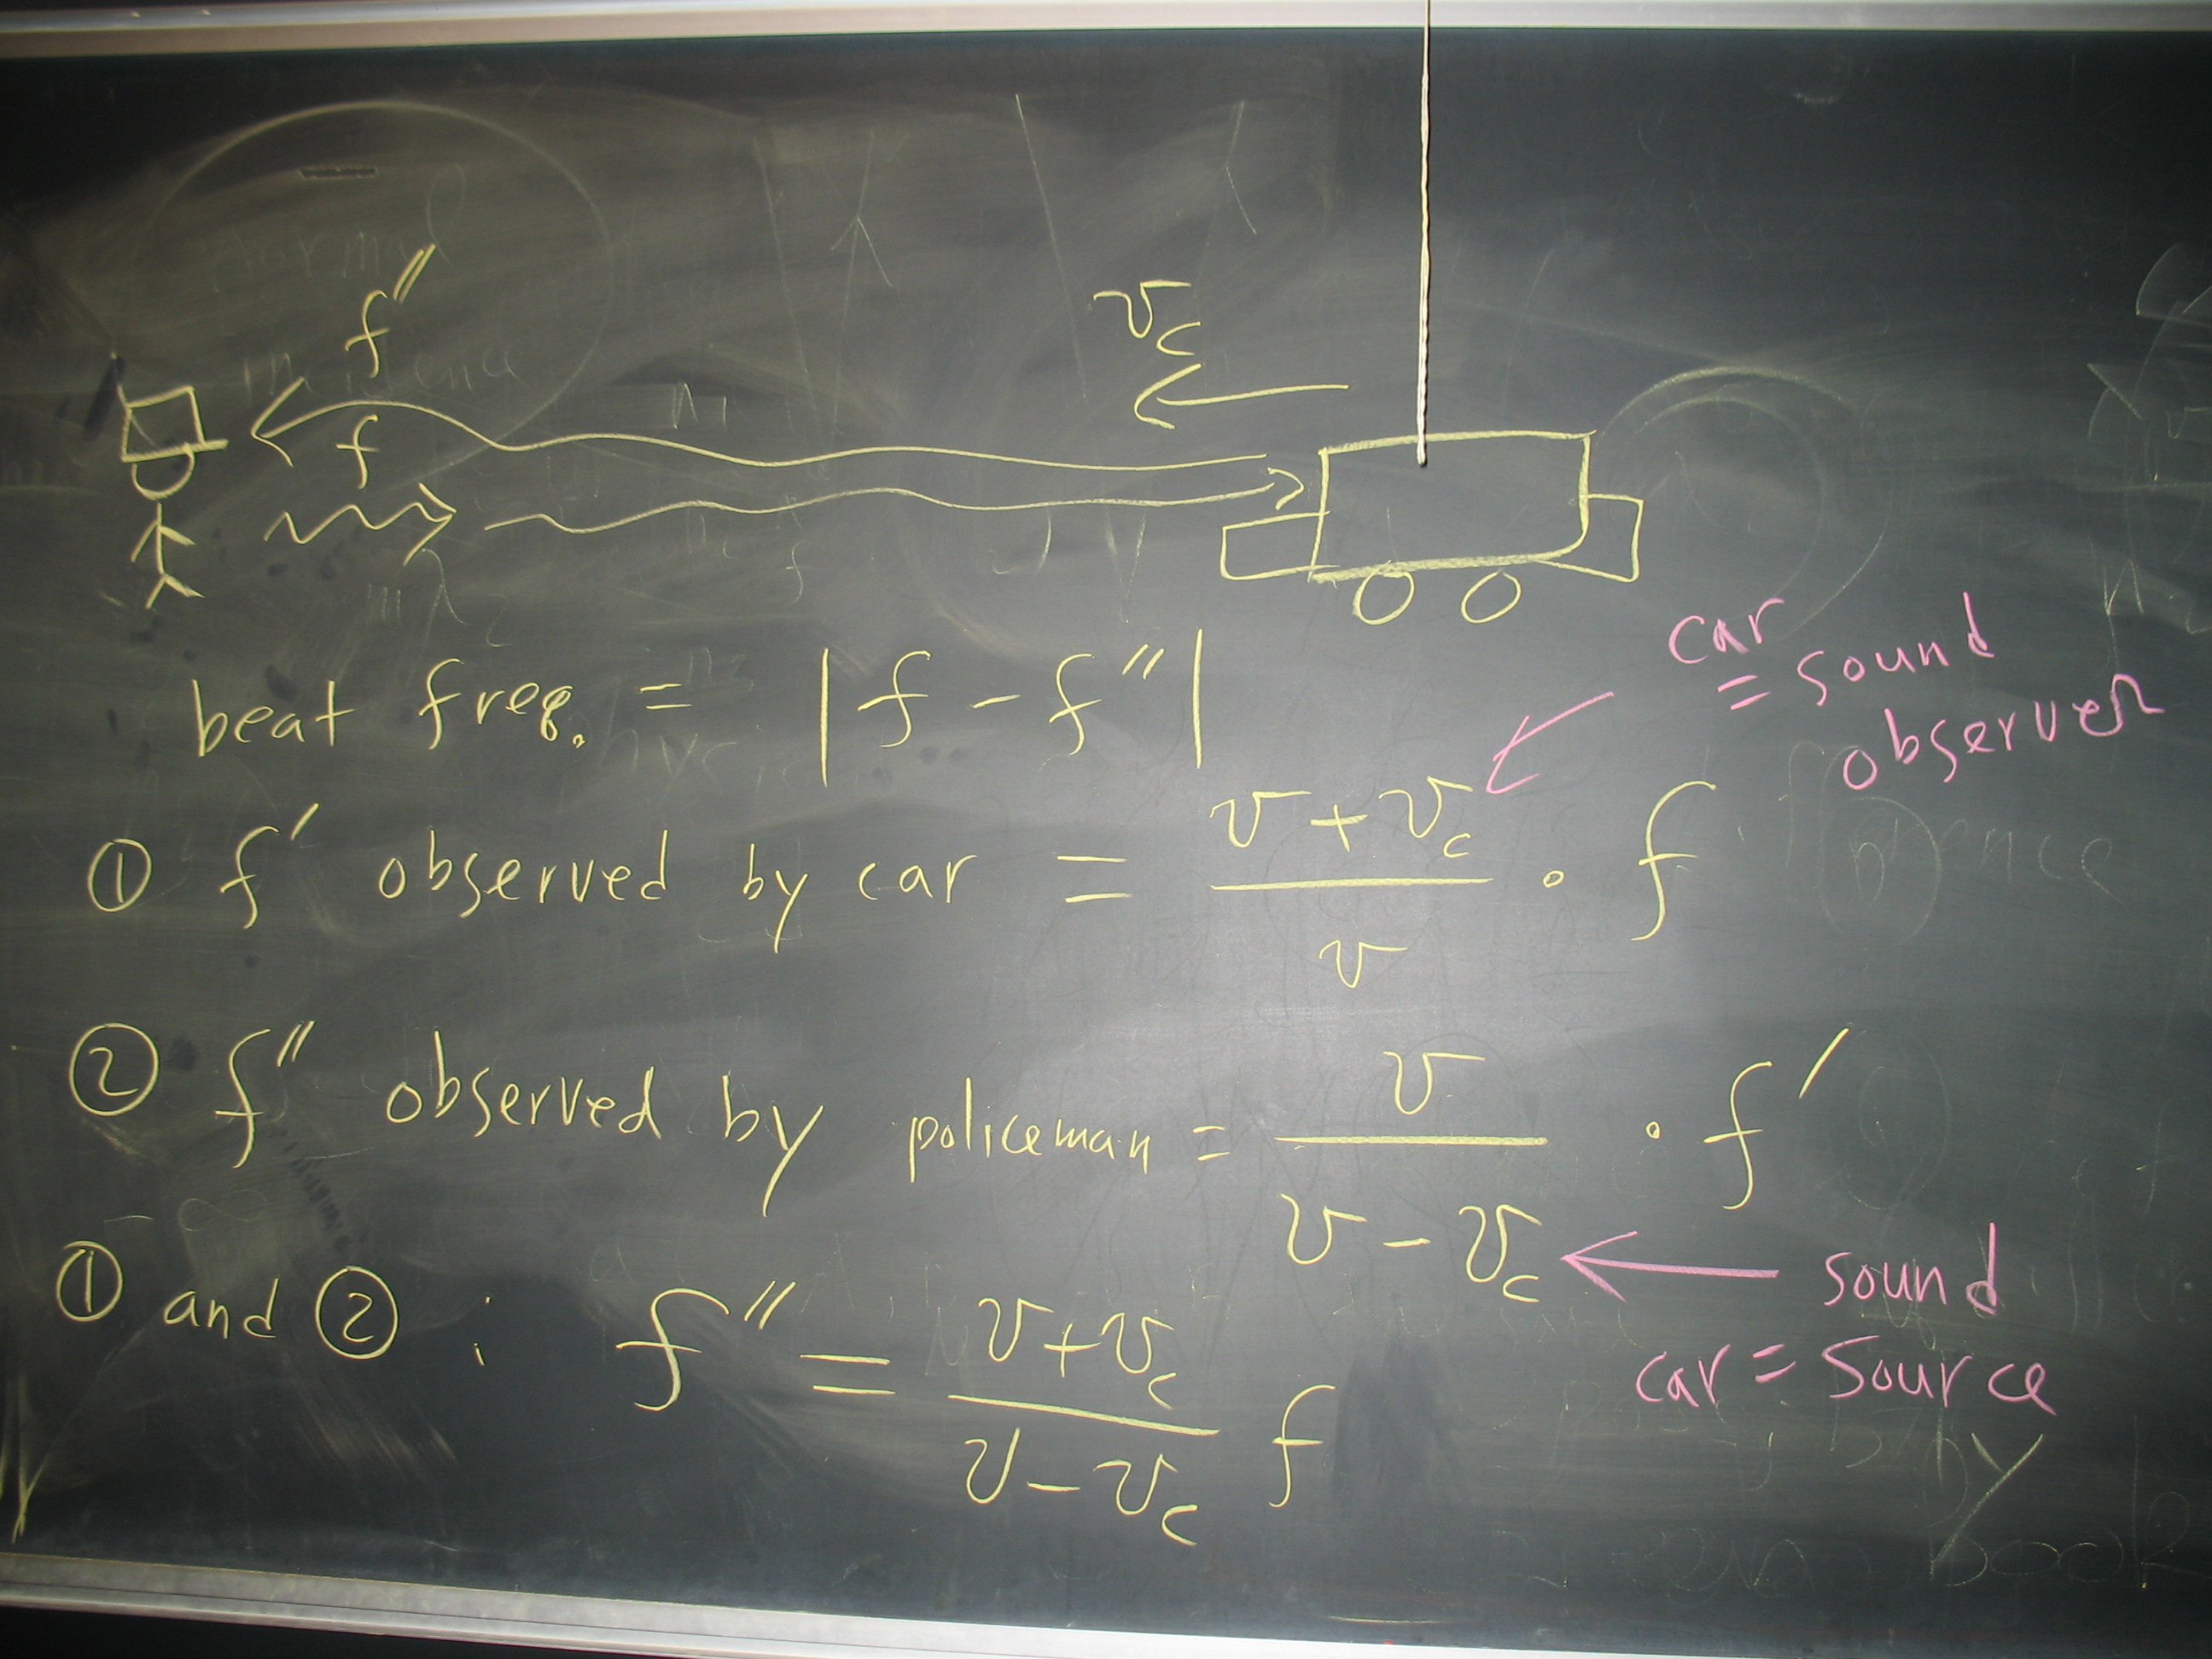 f″
v_c
f
beat freq. = |f - f″|
car
= sound
observer
① f′ observed by car = (v + v_c)/v · f
② f″ observed by policeman = v/(v - v_c) · f′
sound
car = source
① and ② : f″ = (v+v_c)/(v-v_c) f